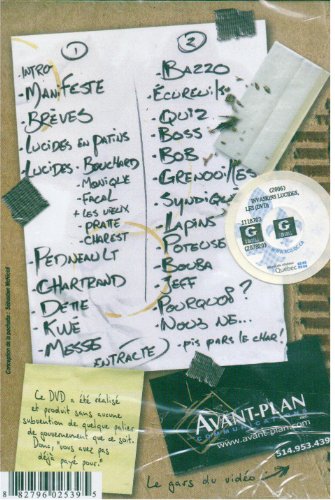 ①
-INTRO
-MANIFESTE
-BRÈVES
-LUCIDES EN PATINS
-LUCIDES: -BOUCHARD
-MONIQUE
-FACAL
+ LES VIEUX
-PRATTE
-CHAREST
-PEDNEAULT
-CHARTRAND
-DETTE
-KWE
-MESSE
ENTRACTE
②
-BAZZO
-ÉCUREUILS
-QUIZ
-BOSS
-BOB
-GRENOUILLES
-SYNDIQUÉ
-LAPINS
-POTEUSE
-BOUBA
-JEFF
-POURQUOI?
-NOUS NE...
-PIS PARS LE CHAR!
(2006)
INVASIONS LUCIDES,
LES (DVD)
G
G
Québec
Conception de la pochette : Sébastien McNicoll
Ce DVD a été réalisé
et produit sans aucune
subvention de quelque palier
de gouvernement que ce soit.
Donc, "vous avez pas
déjà payé pour."
AVANT-PLAN
COMMUNICATIONS
www.avant-plan.com
514.953.439
Le gars du vidéo
8 82796 02539 5